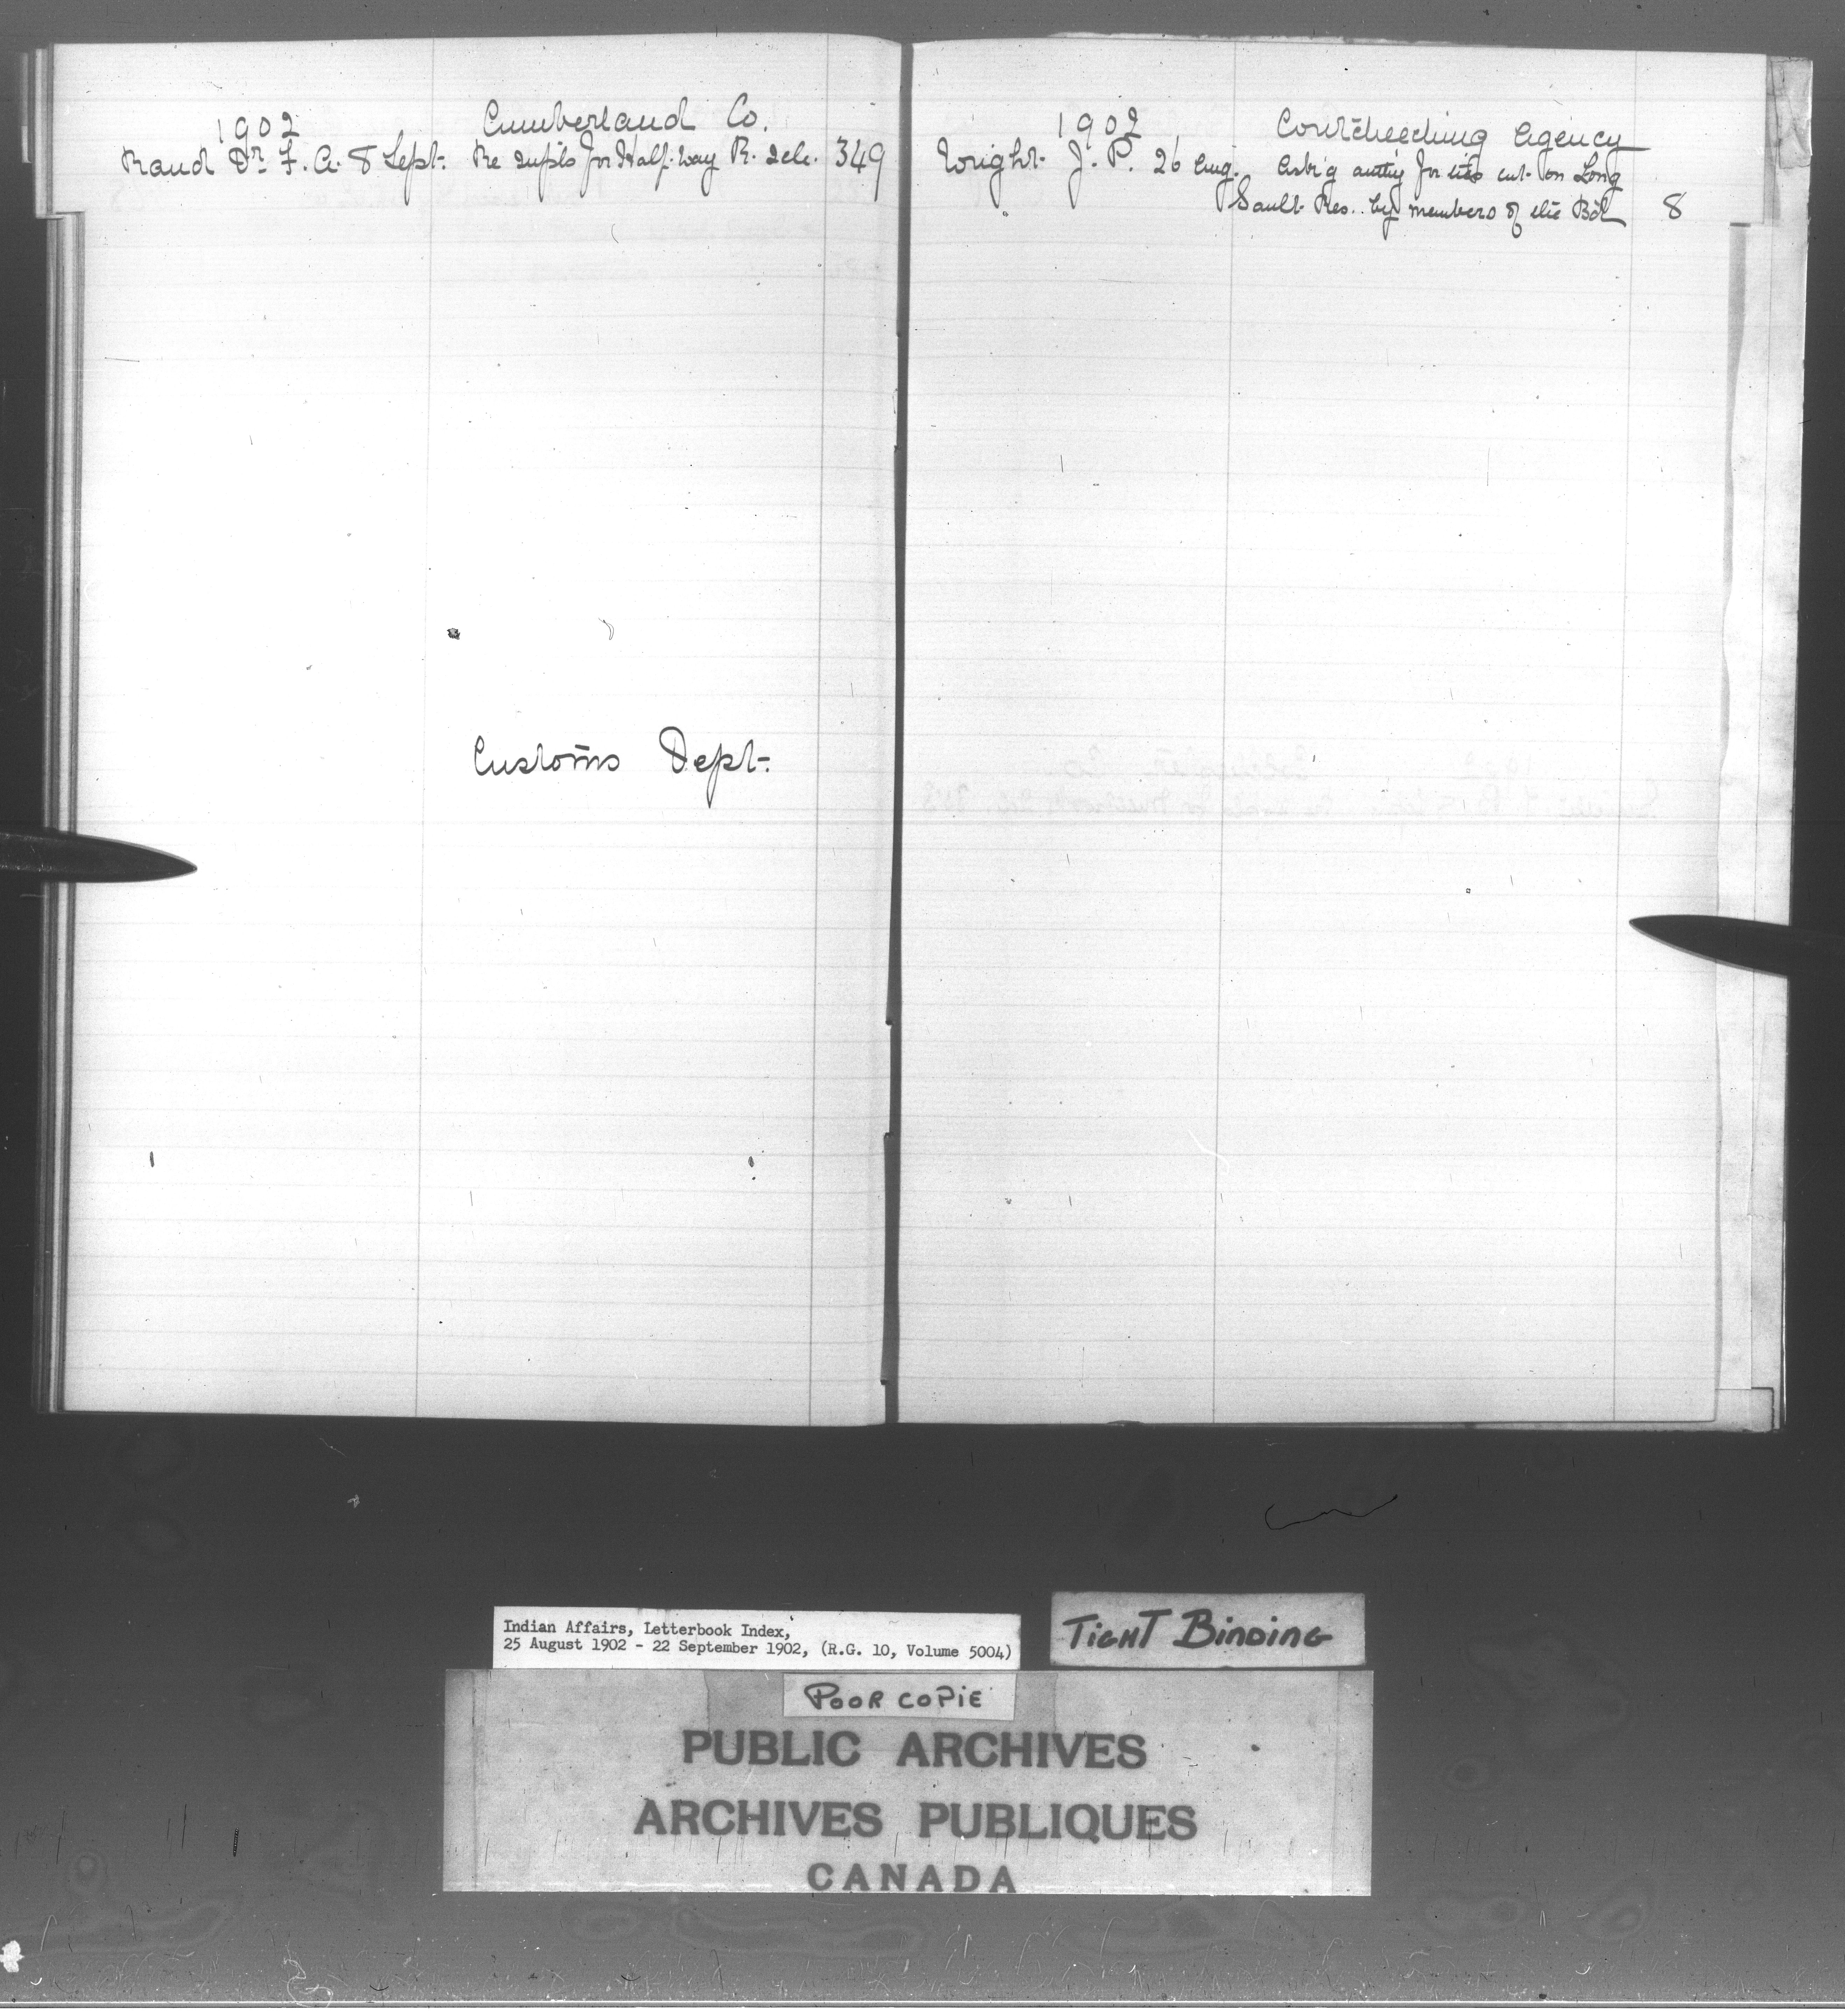 1902 Cumberland Co.
Rand Dr. F. A. 8 Sept. Re supls for Half-way R. 349
Customs Dept.
1902 Coutcheeching Agency
Wright J. P. 26 Aug. Ask'g authy for ties cut on Long
Sault Res. by members of the Bd 8
Indian Affairs, Letterbook Index,
25 August 1902 - 22 September 1902, (R.G. 10, Volume 5004)
TIGHT BINDING
POOR COPIE
PUBLIC ARCHIVES
ARCHIVES PUBLIQUES
CANADA